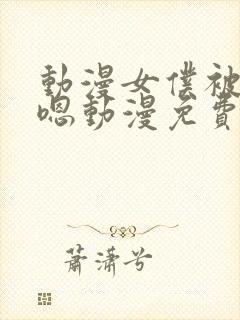 動漫女僕被
嗯動漫免費
蕭瀟兮